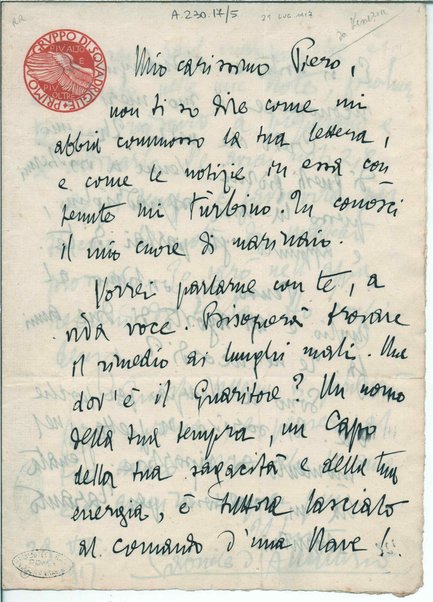 A.230.17/5
PRIMO GRUPPO DI SQUADRIGLIE
PIV ALTO E PIV OLTRE
da Venezia
Mio carissimo Piero,
non ti so dire come mi
abbia commosso la tua lettera,
e come le notizie in essa con
tenute mi turbino. Tu conosci
il mio cuore di marinaio.
Vorrei parlarne con te, a
viva voce. Bisognerà trovare
il rimedio ai lunghi mali. Ma
dov'è il Guaritore? Un uomo
della tua tempra, un Capo
della tua sagacità e della tua
energia, è tuttora lasciato
al comando d'una Nave!.